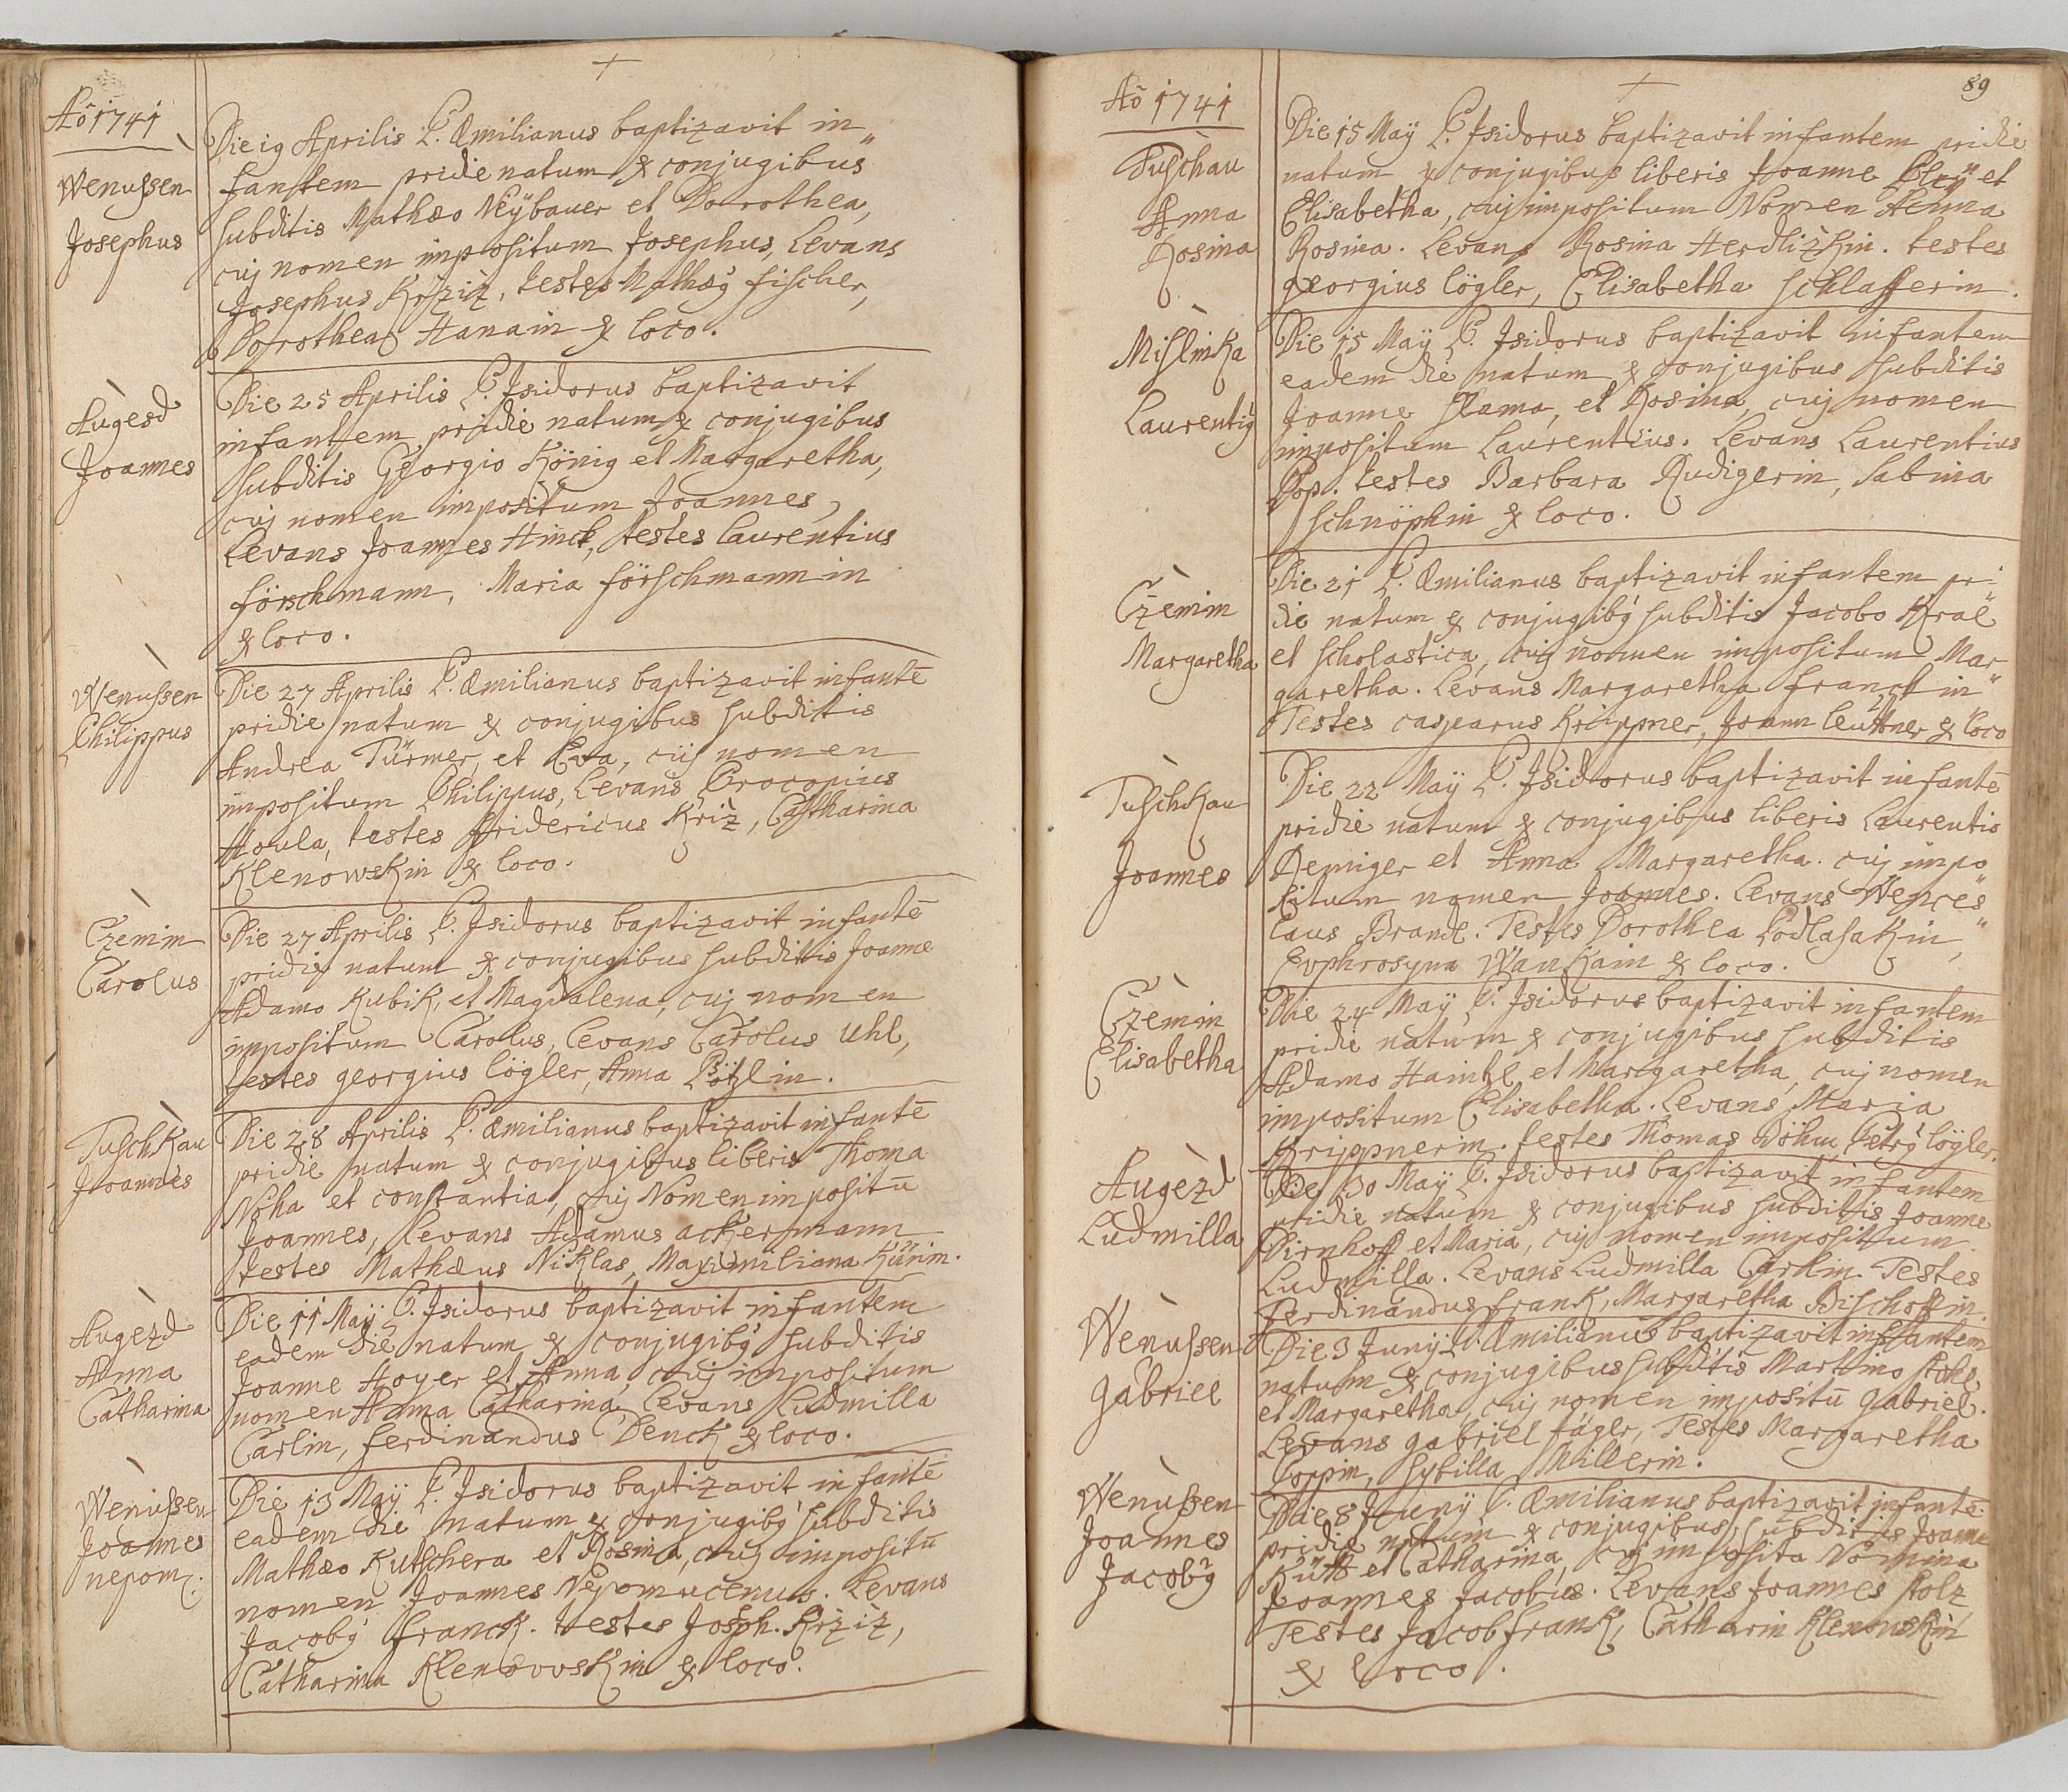 Aō 1741
Wenussen
Josephus
Die 19 Aprilis P. Æmilianus baptizavit in"
fantem pridie natum ex conjugibus
subditis Mathæo Neÿbauer et Dorothea,
cuj nomen impositum Josephus, Levans
Josephus Krziz, testes Mathæg fischer,
Dorothea Hanain ex loco.
Augesd
Joannes
Die 25 Aprilis P. Isidorus baptizavit
infantem pridie natum ex conjugibus
subditis Georgio König et Margaretha,
cuj nomen impositum Joannes,
Levans Joannes Hinck, testes Laurentius
förschmann, Maria förschmannin
ex loco.
Wenussen
Philippus
Die 27 Aprilis P. Æmilianus baptizavit infantē
pridie natum ex conjugibus subditis
Andrea Türmer, et Eva, cuj nomen
impositum Philippus, Levans Procopius
Houla, testes fridericus Kriz, Catharina
Klenowskin ex loco.
Czemin
Carolus
Die 27 Aprilis P. Isidorus baptizavit infantē
pridie natum ex conjugibus subditis Joanne
Adamo Kubik, et Magdalena, cuj nomen
impositum Carolus, Levans Carolus Uhl,
testes georgius lögler, Anna Pötzlin.
Tuschkau
Joannes
Die 28 Aprilis P. Æmilianus baptizavit infantē
pridie natum ex conjugibus liberis Thoma
Noha et constantia, cuj Nomen impositū
Joannes, Levans Adamus ackermann
testes Mathæus Niklas, Maximiliana Kürin.
Augezd
Anna
Catharina
Die 11 Maÿ P. Isidorus baptizavit infantem
eadem die natum ex conjugibg subditis
Joanne Hoyer et Anna, cuj impositum
nomen Anna Catharina, Levans Ludmilla
Carlin, ferdinandus Denck ex loco.
Wenussen
Joannes
nepom:
Die 13 Maÿ P. Isidorus baptizavit infantē
eadem die natum ex conjugibg subditis
Mathæo Kutschera et Rosina, cuj impositū
nomen Joannes Nepomucenus. Levans
Jacobg franck. testes Joseph. Krziz,
Catharina Klenowskin ex loco.
89
Aō 1741
Tuschau
Anna
Rosina
Die 15 Maÿ P. Isidorus baptizavit infantem pridie
natum ex conjugibus liberis Joanne Pleÿ et
Elisabetha, cuj impositum Nomen Anna
Rosina. Levans Rosina Herdlizkin. testes
georgius lögler, Elisabetha Schlafferin.
Mislinka
Laurentig
Die 15 Maÿ P. Isidorus baptizavit infantem
eadem die natum ex conjugibus subditis
Joanne Slama, et Rosina, cuj nomen
impositum Laurentius. Levans Laurentius
Pop. testes Barbara Rudigerin, Sabina
Schnöpkin ex loco.
Czemin
Margaretha
Die 21 P. Æmilianus baptizavit infantem pri"
die natum ex conjugibg subditis Jacobo Kral
et Scholastica, cuj nomen impositum Mar"
garetha. Levans Margaretha franckin
Testes casparus Krippner, Joann leüttner ex loco
Tuschkau
Joannes
Die 22 Maÿ P. Isidorus baptizavit infantē
pridie natum ex conjugibus liberis Laurentio
Demiger et Anna Margaretha. cuj impo"
situm nomen Joannes. Levans Wences"
laus Brandl. Testes Dorothea Podlasakin,
Evphrosyna Wankain ex loco.
Czemin
Elisabetha
Die 24 Maÿ P. Isidorus baptizavit infantem
pridie natum ex conjugibus subditis
Adamo Haintzl et Margaretha, cuj nomen
impositum Elisabetha. Levans Maria
Krippnerin. testes Thomas Böhm, Petrg lögler.
Augezd
Ludmilla
Die 30 Maÿ P. Isidorus baptizavit infantem
pridie natum ex conjugibus subditis Joanne
Birnhoff et Maria, cuj nomen impositum
Ludmilla. Levans Ludmilla Carlin. Testes
ferdinandus frank, Margaretha Bischoffin.
Wenussen
gabriel
Die 3 Junÿ P. Æmilianus baptizavit infantem
natum ex conjugibus subditis Martino
et Margaretha, cuj nomen impositū gabriel.
Levans gabriel Jäger, Testes Margaretha
Poppin, Sybilla Millerin.
Wenussen
Joannes
Jacobg
Die 8 Junÿ P. Æmilianus baptizavit infantē
pridie natum ex conjugibus subditis Joanne
Kütt et Catharina, cuj imposita Nomina
Joannes Jacobus. Levans Joannes Stolz
Testes Jacob frank, Catharin Klenowskin
ex loco.